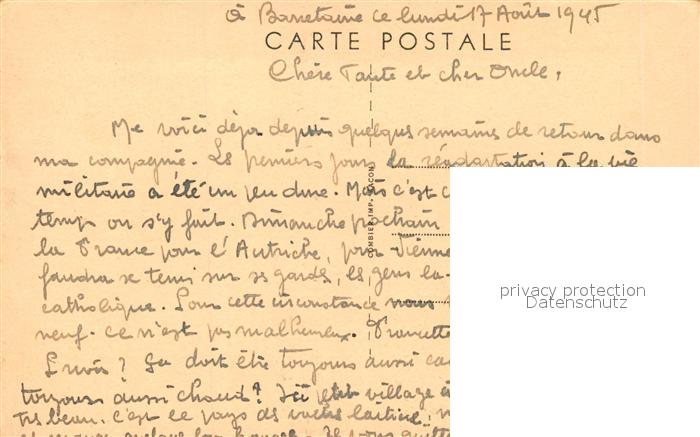 à Barretaine ce lundi 17 Août 1945
CARTE POSTALE
Chère Tante et cher Oncle,
Me voici déjà depuis quelques semaines de retour dans
ma compagnie. Les premiers jours la réadaptation à la vie
militaire a été un peu dure. Mais c'est
temps on s'y fait. Dimanche prochain
la France pour l'Autriche, pour Vienne
faudra se tenir sur ses gardes, les gens là-
catholique. Pour cette circonstance nous
neuf. Ce n'est pas malheureux.
? Ça doit être toujours aussi
toujours aussi chaud? Ici petit village
très beau. c'est le pays des
COMBIER IMP. MACON
privacy protection
Datenschutz